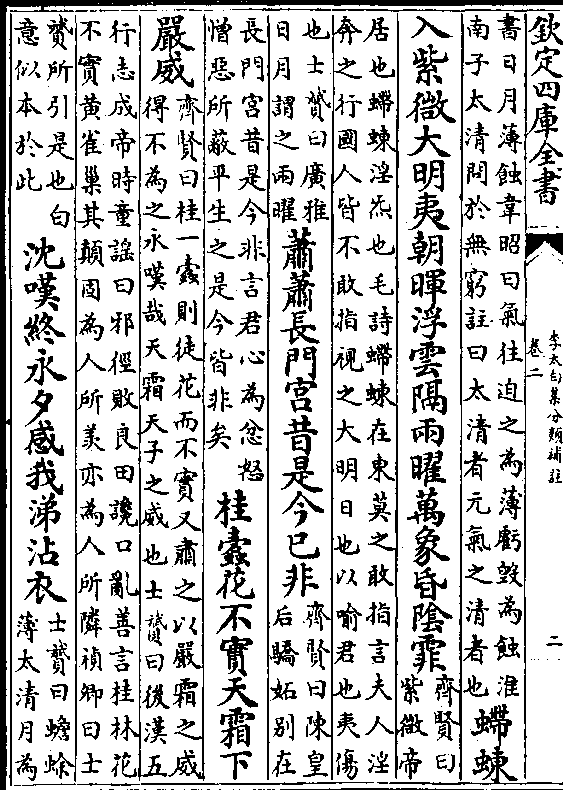 欽定四庫全書
李太白集分類補註
卷二
二
書日月薄蝕韋昭曰氣往迫之為薄虧毀為蝕淮
南子太清問於無窮註曰太清者元氣之清者也
螮蝀
入紫微大明夷朝暉浮雲隔兩曜萬象昏陰霏
齊賢曰
紫微帝
居也螮蝀淫炁也毛詩螮蝀在東莫之敢指言夫人淫
奔之行國人皆不敢指視之大明日也以喻君也夷傷
也士贇曰廣雅
日月謂之兩曜
蕭蕭長門宮昔是今已非
齊賢曰陳皇
后驕妬别在
長門宮昔是今非言君心為忿怒
憎惡所蔽平生之是今皆非矣
桂蠹花不實天霜下
嚴威
齊賢曰桂一蠹則徒花而不實又肅之以嚴霜之威
得不為之永嘆哉天霜天子之威也士贇曰後漢五
行志成帝時童謠曰邪徑敗良田讒口亂善言桂林花
不實黃雀巢其顛固為人所羨亦為人所隣禎卿曰士
贇所引是也白
意似本於此
沈嘆終永夕感我涕沾衣
士贇曰蟾蜍
薄太清月為